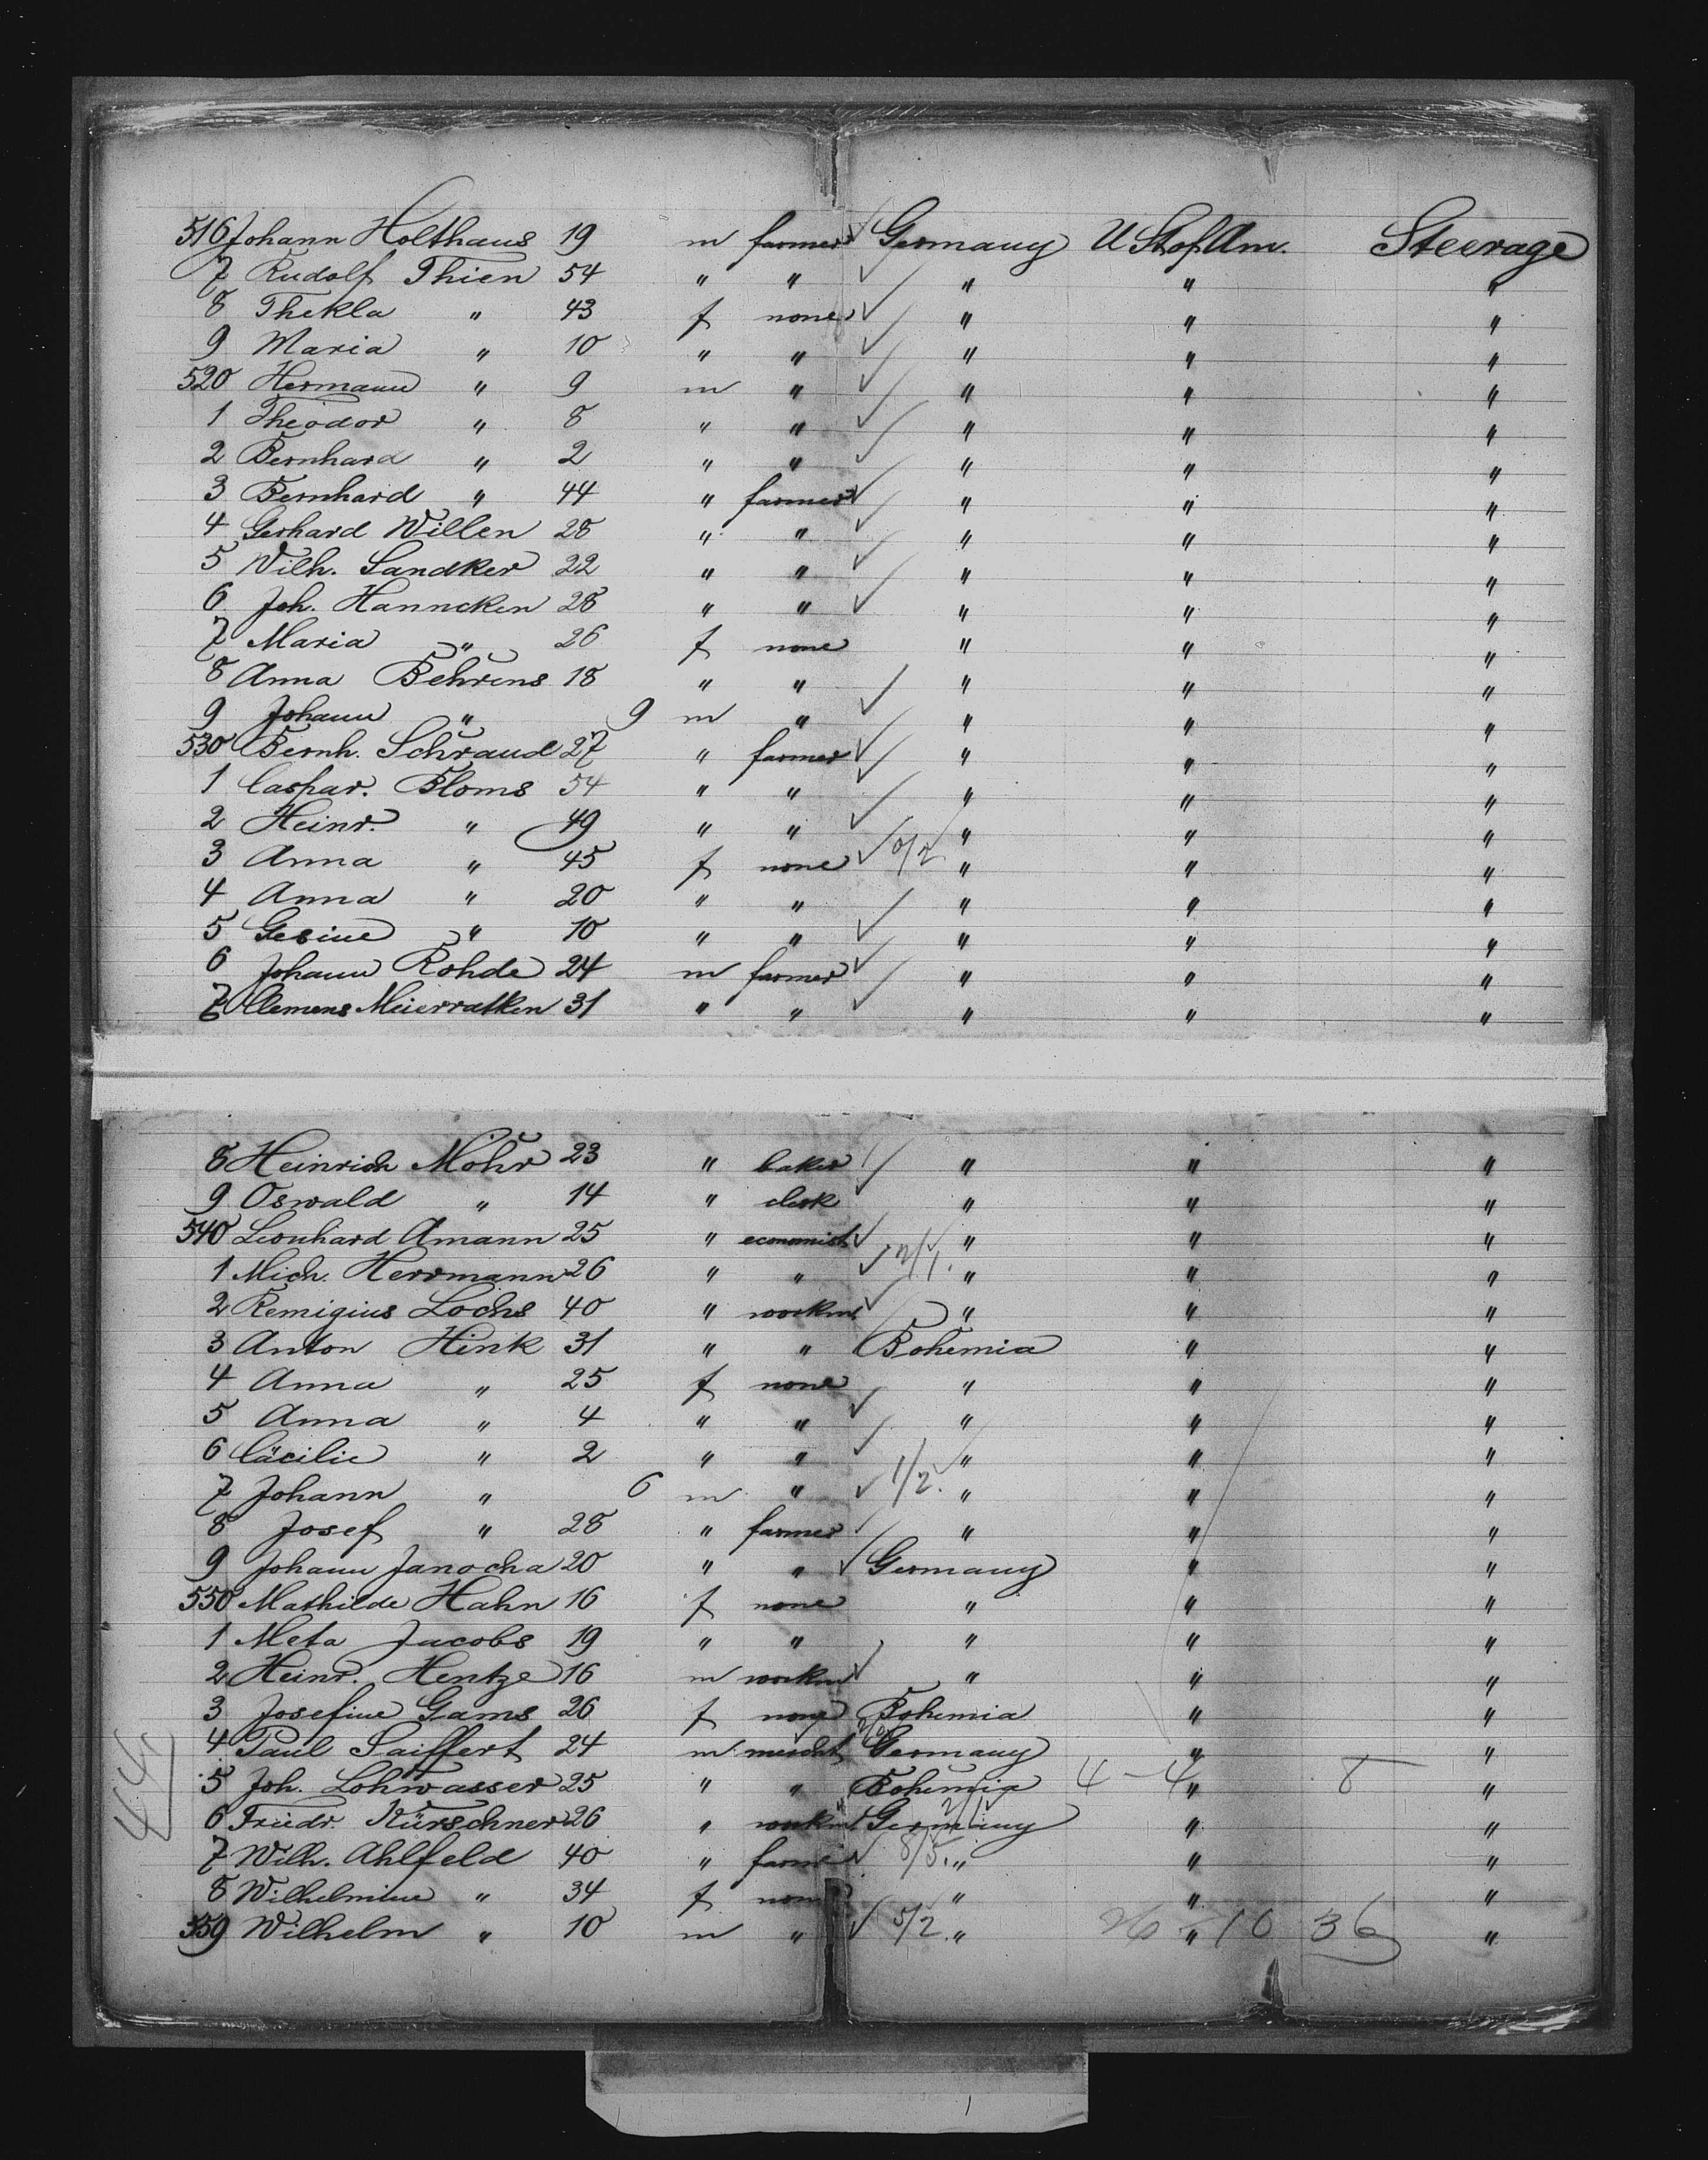 516 Johann Holthaus 19 m farmer Germany U St of Am. Steerage
7 Rudolf Thien 54 " " " " "
8 Thekla " 43 f none " " "
9 Maria " 10 " " " " "
520 Hermann " 9 m " " " "
1 Theodor " 8 " " " " "
2 Bernhard " 2 " " " " "
3 Bernhard " 44 " farmer " " "
4 Gerhard Willen 28 " " " " "
5 Wilh. Sandker 22 " " " " "
6 Joh. Hanncken 28 " " " " "
7 Maria " 26 f none " " "
8 Anna Behrens 18 " " " " "
9 Johann " 9 m " " " "
530 Bernh. Schraud 27 " farmer " " "
1 Caspar. Bloms 54 " " " " "
2 Heinr. " 49 " " " " "
3 Anna " 45 f none 0/2 " " "
4 Anna " 20 " " " " "
5 Gesine " 10 " " " " "
6 Johann Rohde 24 m farmer " " "
7 Clemens Meierratken 31 " " " " "
8 Heinrich Mohr 23 " baker " " "
9 Oswald " 14 " clerk " " "
540 Leonhard Amann 25 " economist " " "
1 Mich. Herrmann 26 " " 2/1. " " "
2 Remigius Lochs 40 " workm " " "
3 Anton Hink 31 " " Bohemia " "
4 Anna " 25 f none " " "
5 Anna " 4 " " " " "
6 Cäcilie " 2 " " " " "
7 Johann " 6 m " 1/2. " " "
8 Josef " 28 " farmer " " "
9 Johann Janocha 20 " " Germany " "
550 Mathilde Hahn 16 f none " " "
1 Meta Jacobs 19 " " " " "
2 Heinr. Hentze 16 m workm " " "
3 Josefine Gams 26 f none Bohemia " "
4 Paul Saiffert 24 m mercht Germany " "
5 Joh. Lohwasser 25 " " Bohemia 4 - 4 " 8 "
6 Friedr. Kürschner 26 " workm Germany 2/1 " "
7 Wilh. Ahlfeld 40 " farmer 8/5. " " "
8 Wilhelmine " 34 f none " " "
559 Wilhelm " 10 m " 5/2. " 26 " 10 36 "
44